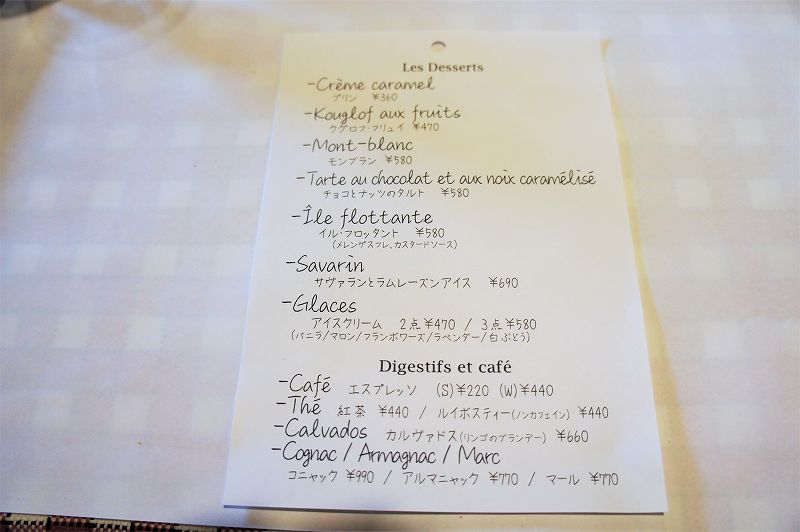 Les Desserts
-Crème caramel
プリン ¥360
-Kouglof aux fruits
クグロフ・フリュイ ¥470
-Mont-blanc
モンブラン ¥580
-Tarte au chocolat et aux noix caramélisé
チョコとナッツのタルト ¥580
-Île flottante
イル・フロッタント ¥580
(メレンゲスフレ、カスタードソース)
-Savarin
サヴァランとラムレーズンアイス ¥690
-Glaces
アイスクリーム 2点¥470 / 3点¥580
(バニラ/マロン/フランボワーズ/ラベンダー/白ぶどう)
Digestifs et café
-Café エスプレッソ (S)¥220 (W)¥440
-Thé 紅茶 ¥440 / ルイボスティー(ノンカフェイン) ¥440
-Calvados カルヴァドス(リンゴのブランデー) ¥660
-Cognac / Armagnac / Marc
コニャック ¥990 / アルマニャック ¥770 / マール ¥770